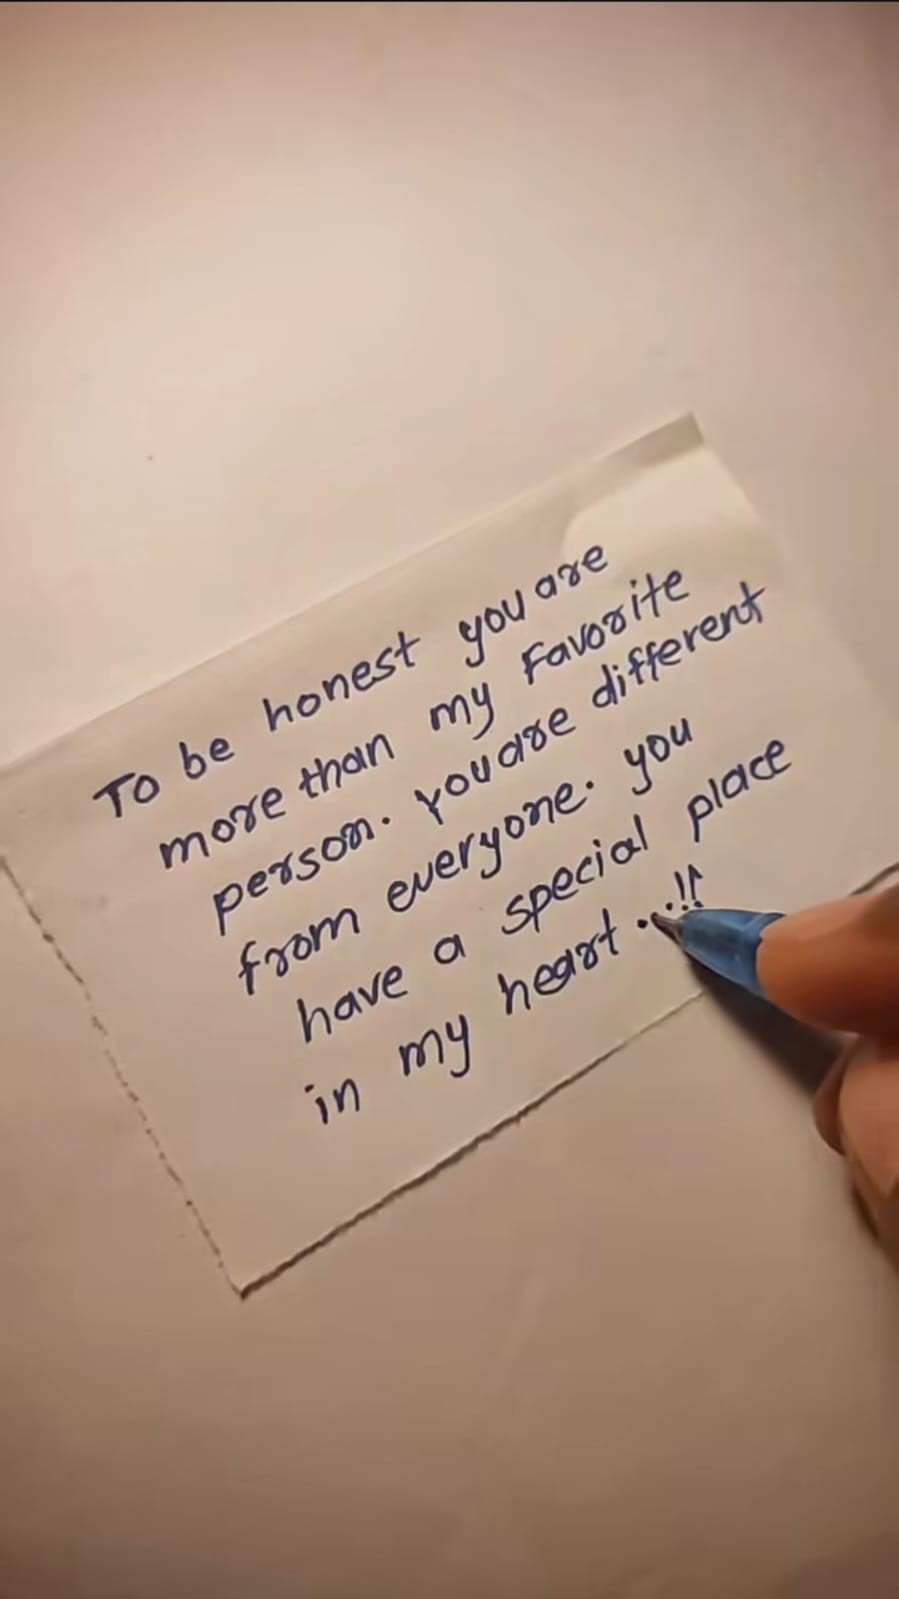 To be honest you are
more than my Favorite
person. You are different
from everyone. you
have a special place
in my heart...!!